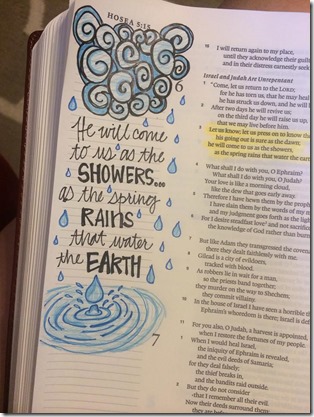 HOSEA 5:15
6
He will come
to us as the
SHOWERS...
as the spring
RAINS
that water
the EARTH
7
I will return again to my place,
until they acknowledge their guilt
and in their distress earnestly seek
Israel and Judah Are Unrepentant
"Come, let us return to the LORD;
for he has torn us, that he may heal
he has struck us down, and he will
After two days he will revive us;
on the third day he will raise us up,
that we may live before him.
Let us know; let us press on to know the
his going out is sure as the dawn;
he will come to us as the showers,
as the spring rains that water the earth
What shall I do with you, O Ephraim?
What shall I do with you, O Judah?
Your love is like a morning cloud,
like the dew that goes early away.
Therefore I have hewn them by the prophets
I have slain them by the words of my
and my judgment goes forth as the light
For I desire steadfast love and not sacrifice
the knowledge of God rather than burnt
But like Adam they transgressed the covenant
there they dealt faithlessly with me.
Gilead is a city of evildoers,
tracked with blood.
As robbers lie in wait for a man,
so the priests band together;
they murder on the way to Shechem;
they commit villainy.
In the house of Israel I have seen a horrible
Ephraim's whoredom is there; Israel is
For you also, O Judah, a harvest is appointed,
when I restore the fortunes of my people.
When I would heal Israel,
the iniquity of Ephraim is revealed,
and the evil deeds of Samaria;
for they deal falsely;
the thief breaks in,
and the bandits raid outside.
But they do not consider
that I remember all their evil
Now their deeds surround them